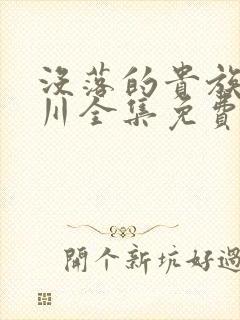 没落的貴族
川全集免費
開個新坑好過